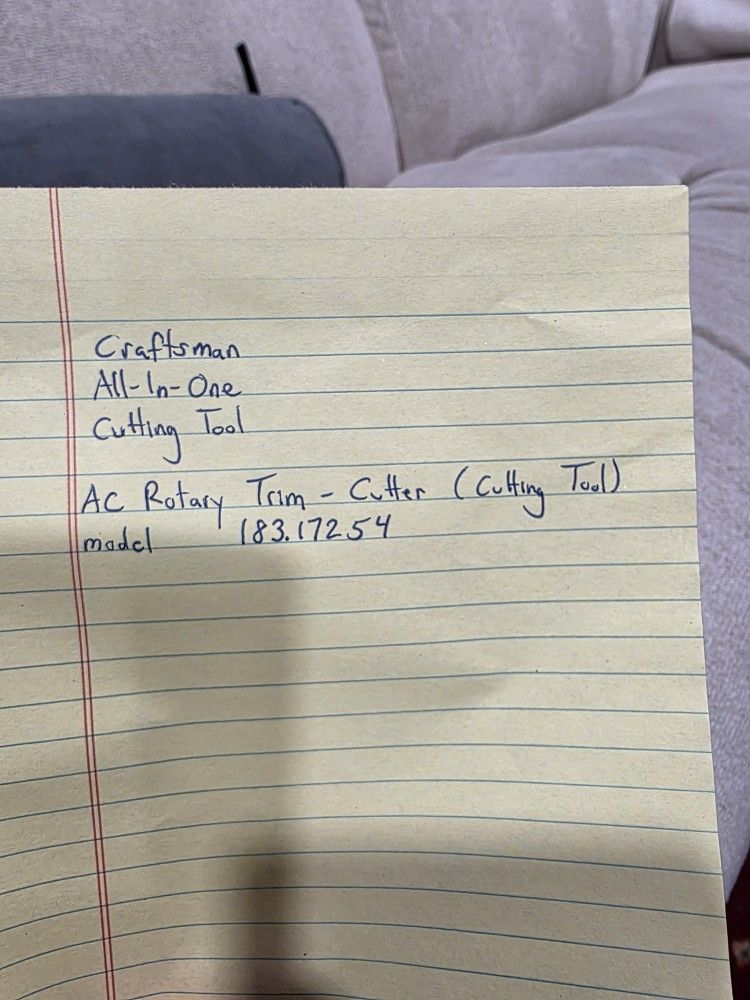 Craftsman
All-In-One
Cutting Tool
AC Rotary Trim - Cutter (Cutting Tool)
model 183.17254